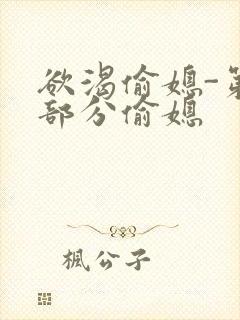 欲渴偷媳-第
部分偷媳
楓公子